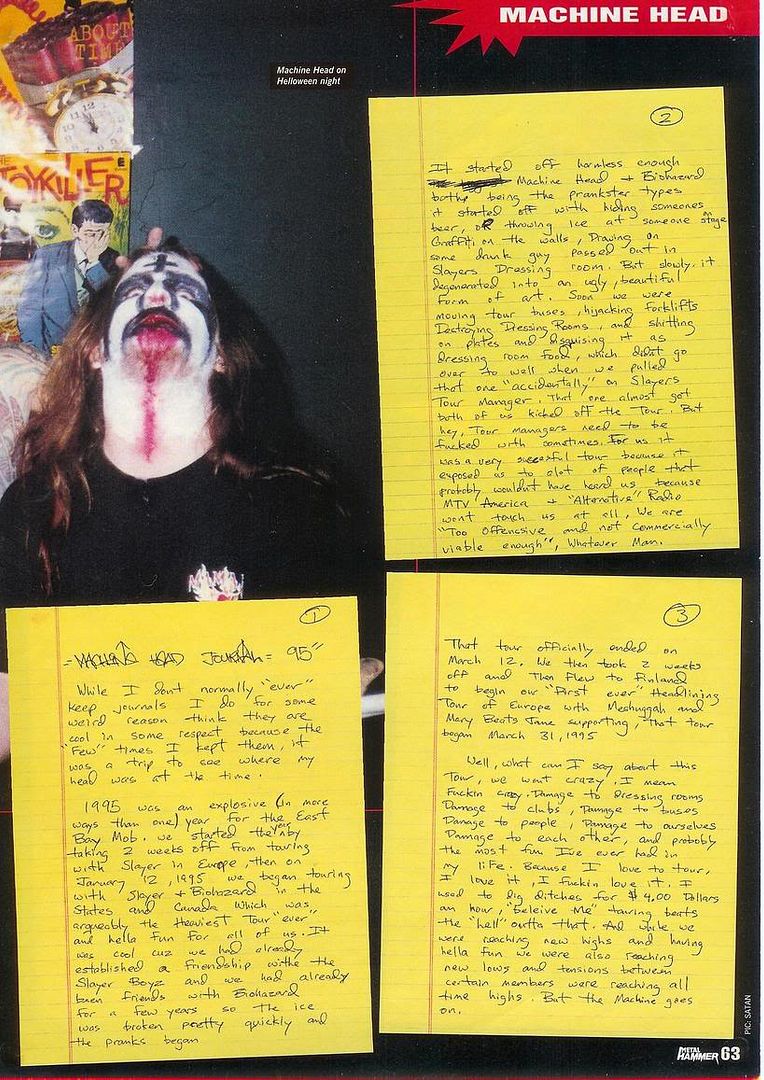 MACHINE HEAD
ABOUT
TIME
TOYKILLER
Machine Head on
Helloween night
1
=MACHINE HEAD JOURNAL= 95"
While I dont normally "ever"
keep journals I do for some
weird reason think they are
cool in some respect because the
"Few" times I kept them, it
was a trip to see where my
head was at the time.
1995 was an explosive (in more
ways than one) year for the East
Bay Mob. we started the year by
taking 2 weeks off from touring
with Slayer in Europe, then on
January 12, 1995 we began touring
with Slayer + Biohazard in the
States and Canada which was
argueably the Heaviest Tour "ever"
and hella fun for all of us. It
was cool cuz we had already
established a friendship withe the
Slayer Boyz and we had already
been friends with Biohazard
for a few years so the ice
was broken pretty quickly and
the pranks began
2
It started off harmless enough
Machine Head + Biohazard
bothe being the prankster types
it started off with hiding someones
beer, or throwing ice at someone on stage
Graffiti on the walls, Drawing on
some drunk guy passed out in
Slayers Dressing room. But slowly it
degenerated into an ugly, beautiful
form of art. Soon we were
moving tour buses, hijacking forklifts
Destroying Dressing Rooms, and shitting
on plates and disguising it as
dressing room food, which didnt go
over to well when we pulled
that one "accidentally" on Slayers
Tour Manager. That one almost got
both of us kicked off the Tour. But
hey, Tour managers need to be
fucked with sometimes. For us it
was a very sucessful tour because it
exposed us to alot of people that
probably wouldnt have heard us because
MTV America + "Alternative" Radio
wont touch us at all, We are
"Too Offensive and not commercially
viable enough", Whatever Man.
3
That tour officially ended on
March 12. We then took 2 weeks
off and Then flew to Finland
to begin our "First ever" Headlining
Tour of Europe with Meshuggah and
Mary Beats Jane supporting, That tour
began March 31, 1995
Well, what can I say about this
Tour, we went crazy. I mean
Fuckin crazy. Damage to dressing rooms
Damage to clubs, Damage to buses
Damage to people, Damage to ourselves
Damage to each other, and probably
the most fun I've ever had in
my life. Because I love to tour,
I love it, I fuckin love it. I
used to dig ditches for $4.00 Dollars
an hour, "beleive Me" touring beats
the "hell" outta that. And while we
were reaching new highs and having
hella fun we were also reaching
new lows and tensions between
certain members were reaching all
time highs. But the Machine goes
on.
PIC: SATAN
METAL
HAMMER 63